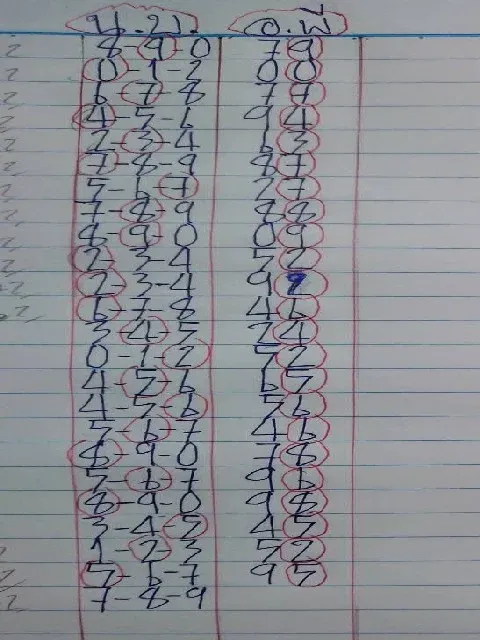 8-9-0 79
0-1-2 00
6-7-8 77
4-5-6 94
2-3-4 63
7-8-9 87
5-6-7 27
7-8-9 88
8-9-0 09
2-3-4 52
2-3-4 9
6-7-8 46
3-4-5 24
0-1-2 52
4-5-6 65
4-5-6 56
5-6-7 46
8-9-0 78
5-6-7 96
8-9-0 98
3-4-5 45
1-2-3 52
5-6-7 95
7-8-9